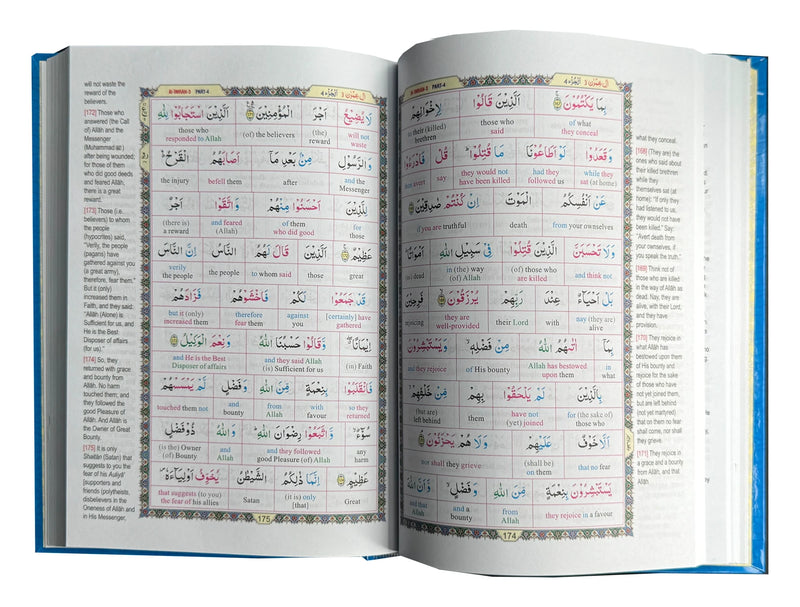 آل عمرٰن 3 الجزء 4
بِمَا يَكْتُمُوْنَ الَّذِيْنَ قَالُوْا لِاِخْوَانِهِمْ
of what they conceal those who said to their (killed) brethren
وَقَعَدُوْا لَوْ اَطَاعُوْنَا مَا قُتِلُوْا قُلْ فَادْرَءُوْا
while they sat (at home) had they followed us they would not have been killed say avert
عَنْ اَنْفُسِكُمُ الْمَوْتَ اِنْ كُنْتُمْ صٰدِقِيْنَ
from your ownselves death if you are truthful
وَلَا تَحْسَبَنَّ الَّذِيْنَ قُتِلُوْا فِيْ سَبِيْلِ اللّٰهِ اَمْوَاتًا
and think not (of) those who are killed in (the) way (of) Allah dead
بَلْ اَحْيَآءٌ عِنْدَ رَبِّهِمْ يُرْزَقُوْنَ فَرِحِيْنَ
nay (they are) alive with their Lord they are well-provided rejoicing
بِمَآ اٰتٰىهُمُ اللّٰهُ مِنْ فَضْلِهٖ وَيَسْتَبْشِرُوْنَ
in what Allah has bestowed upon them of His bounty and they rejoice
بِالَّذِيْنَ لَمْ يَلْحَقُوْا بِهِمْ مِّنْ خَلْفِهِمْ
for (the sake of) those who have not (yet) joined them (but are) left behind
اَلَّا خَوْفٌ عَلَيْهِمْ وَلَا هُمْ يَحْزَنُوْنَ
that no fear (shall be) on them nor shall they grieve
يَسْتَبْشِرُوْنَ بِنِعْمَةٍ مِّنَ اللّٰهِ وَفَضْلٍ وَّاَنَّ اللّٰهَ
they rejoice in a favour from Allah and a bounty and that Allah
174
what they conceal.
[168] (They are) the
ones who said about
their killed brethren
while they
themselves sat (at
home): "If only they
had listened to us,
they would not have
been killed." Say:
"Avert death from
your ownselves, if
you speak the truth."
[169] Think not of
those who are killed
in the way of Allâh
as dead. Nay, they
are alive, with their
Lord, and they
have provision.
[170] They rejoice in
what Allâh has
bestowed upon them
of His bounty and
rejoice for the sake
of those who have
not yet joined them,
but are left behind
(not yet martyred)
that on them no fear
shall come, nor shall
they grieve.
[171] They rejoice in
a grace and a bounty
from Allâh, and that
Al-'IMRÂN-3 PART-4 آل عمرٰن 3 الجزء 4
لَا يُضِيْعُ اَجْرَ الْمُؤْمِنِيْنَ الَّذِيْنَ اسْتَجَابُوْا لِلّٰهِ
will not waste (the) reward (of) the believers those who responded to Allah
وَالرَّسُوْلِ مِنْۢ بَعْدِ مَآ اَصَابَهُمُ الْقَرْحُ
and the Messenger after befell them the injury
لِلَّذِيْنَ اَحْسَنُوْا مِنْهُمْ وَاتَّقَوْا اَجْرٌ
for those of them who did good and feared (Allah) (there is) a reward
عَظِيْمٌ الَّذِيْنَ قَالَ لَهُمُ النَّاسُ اِنَّ النَّاسَ
great those to whom said the people verily the people
قَدْ جَمَعُوْا لَكُمْ فَاخْشَوْهُمْ فَزَادَهُمْ
[certainly] have gathered against you therefore fear them but it (only) increased them
اِيْمَانًا وَّقَالُوْا حَسْبُنَا اللّٰهُ وَنِعْمَ الْوَكِيْلُ
(in) Faith and they said Allah (is) Sufficient for us and He is the Best Disposer of affairs
فَانْقَلَبُوْا بِنِعْمَةٍ مِّنَ اللّٰهِ وَفَضْلٍ لَّمْ يَمْسَسْهُمْ
so they returned with favour from Allah and bounty touched them not
سُوْٓءٌ وَّاتَّبَعُوْا رِضْوَانَ اللّٰهِ وَاللّٰهُ ذُوْ فَضْلٍ
any harm and they followed (the) good Pleasure (of) Allah and Allah (is) Owner (of) Bounty
عَظِيْمٍ اِنَّمَا ذٰلِكُمُ الشَّيْطٰنُ يُخَوِّفُ اَوْلِيَآءَهٗ
Great (it is) only [that] Satan that suggests (to you) the fear of his allies
175
will not waste the
reward of the
believers.
[172] Those who
answered (the Call
of) Allâh and the
Messenger
(Muhammad ﷺ)
after being wounded;
for those of them
who did good deeds
and feared Allâh,
there is a great
reward.
[173] Those (i.e.
believers) to whom
the people
(hypocrites) said,
"Verily, the people
(pagans) have
gathered against you
(a great army),
therefore, fear them."
But it (only)
increased them in
Faith, and they said:
"Allâh (Alone) is
Sufficient for us, and
He is the Best
Disposer of affairs
(for us)."
[174] So, they
returned with grace
and bounty from
Allâh. No harm
touched them; and
they followed the
good Pleasure of
Allâh. And Allâh is
the Owner of Great
Bounty.
[175] It is only
Shaitân (Satan) that
suggests to you the
fear of his Auliyâ'
[supporters and
friends (polytheists,
disbelievers in the
Oneness of Allâh and
in His Messenger,